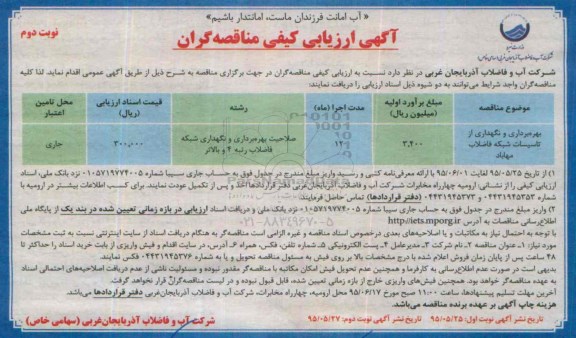 « آب امانت فرزندان ماست، امانتدار باشیم»
نوبت دوم
آگهی ارزیابی کیفی مناقصه‌گران
شرکت آب و فاضلاب آذربایجان غربی در نظر دارد نسبت به ارزیابی کیفی مناقصه‌گران در جهت برگزاری مناقصه به شرح ذیل از طریق آگهی عمومی اقدام نماید. لذا کلیه
مناقصه‌گران واجد شرایط می‌توانند به دو شیوه ذیل اسناد ارزیابی را دریافت نمایند:
موضوع مناقصه	مبلغ برآورد اولیه (میلیون ریال)	مدت اجرا (ماه)	رشته	قیمت اسناد ارزیابی (ریال)	محل تامین اعتبار
بهره‌برداری و نگهداری از تاسیسات شبکه فاضلاب مهاباد	۳,۴۰۰	۱۲	صلاحیت بهره‌برداری و نگهداری شبکه فاضلاب رتبه ۴ و بالاتر	۳۰۰,۰۰۰	جاری
۱) از تاریخ ۹۵/۰۵/۲۵ لغایت ۹۵/۰۶/۰۱ با ارائه معرفی‌نامه کتبی و رسید واریز مبلغ مندرج در جدول فوق به حساب جاری سیبا شماره ۰۱۰۵۷۱۹۷۷۴۰۰۵ نزد بانک ملی، اسناد
ارزیابی کیفی را از نشانی: ارومیه چهارراه مخابرات شرکت آب و فاضلاب آذربایجان غربی دفتر قراردادها اخذ و پس از تکمیل عودت نمایند. برای کسب اطلاعات بیشتر در ارومیه با
شماره ۰۴۴۳۱۹۴۵۳۵۳ و ۰۴۴۳۱۹۴۵۳۷۳ (دفتر قراردادها) تماس حاصل فرمایند.
۲) واریز مبلغ مندرج در جدول فوق به حساب جاری سیبا شماره ۰۱۰۵۷۱۹۷۷۴۰۰۵ نزد بانک ملی و دریافت اسناد ارزیابی در بازه زمانی تعیین شده در بند یک از پایگاه ملی
اطلاع‌رسانی مناقصات به آدرس http://iets.mporg.ir
با توجه به احتمال نیاز به مکاتبات و یا اصلاحیه‌های بعدی درخصوص اسناد مناقصه و غیره الزامی است مناقصه‌گر به هنگام دریافت اسناد از سایت اینترنتی نسبت به ثبت مشخصات
مورد نیاز: ۱ـ عنوان مناقصه ۲ـ نام شرکت ۳ـ مدیرعامل ۴ـ پست الکترونیکی ۵ـ شماره تلفن، فکس، همراه ۶ـ آدرس، در سایت اقدام و فیش واریزی از بابت خرید اسناد را حداکثر تا
۴۸ ساعت پس از پایان زمان فروش اعلام شده با درج مشخصات بالا بر روی فیش به مسئول مناقصه تحویل و یا به شماره ۰۴۴۳۱۹۴۵۳۷۶ فکس نمایند.
بدیهی است در صورت عدم اطلاع‌رسانی به کارفرما و همچنین عدم تحویل فیش امکان مکاتبه با مناقصه‌گر مقدور نبوده و مسئولیت ناشی از عدم دریافت اصلاحیه‌های احتمالی اسناد
به عهده مناقصه‌گر خواهد بود. همچنین فیش‌های واریزی خارج از بازه زمانی تعیین شده، قابل قبول نبوده و در لیست مناقصه‌گران قرار نخواهد گرفت.
آخرین مهلت تسلیم پیشنهادها، ساعت ۱۱:۰۰ صبح مورخ ۹۵/۰۶/۱۷ محل ارومیه، چهارراه مخابرات، شرکت آب و فاضلاب آذربایجان‌غربی دفتر قراردادها می‌باشد.
هزینه چاپ آگهی بر عهده برنده مناقصه می‌باشد.
تاریخ نشر آگهی نوبت اول: ۹۵/۰۵/۲۵ تاریخ نشر آگهی نوبت دوم: ۹۵/۰۵/۲۷
شرکت آب و فاضلاب آذربایجان‌غربی (سهامی خاص)